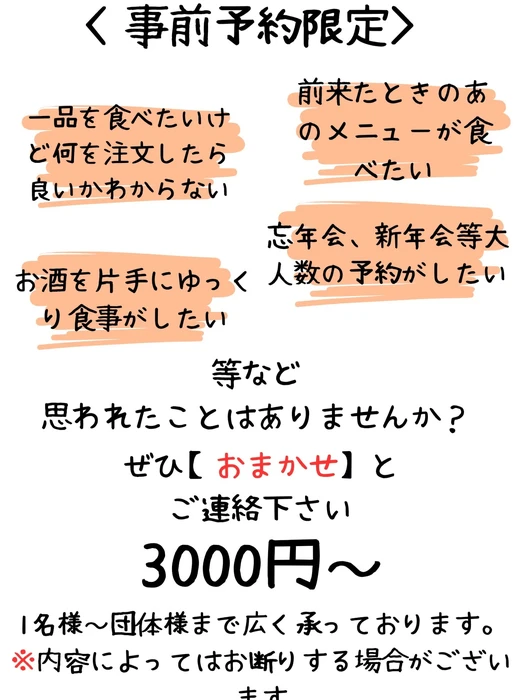 〈 事前予約限定〉
一品を食べたいけ
ど何を注文したら
良いかわからない
前来たときのあ
のメニューが食
べたい
お酒を片手にゆっく
り食事がしたい
忘年会、新年会等大
人数の予約がしたい
等など
思われたことはありませんか?
ぜひ【 おまかせ】と
ご連絡下さい
3000円〜
1名様〜団体様まで広く承っております。
※内容によってはお断りする場合がござい
ます